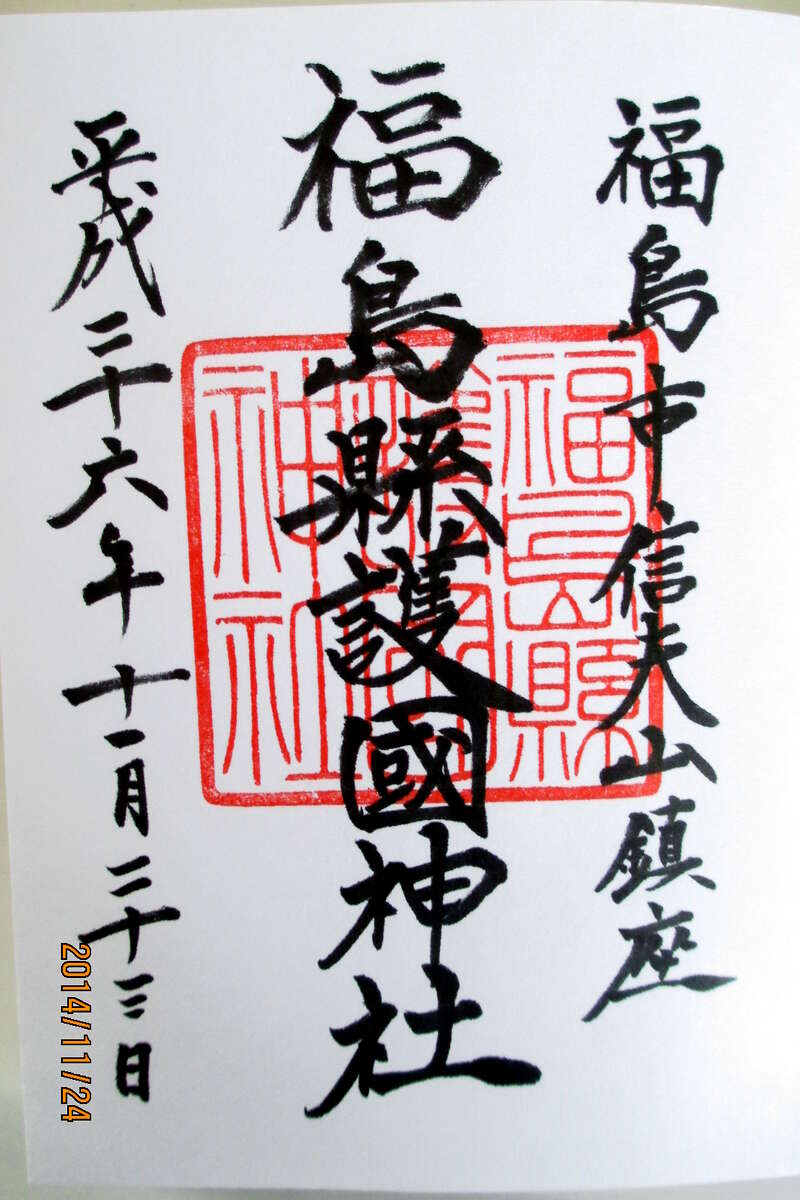 福島市信夫山鎮座
福島縣護國神社
平成二十六年十一月二十三日
福島縣
護國
神社
2014/11/24